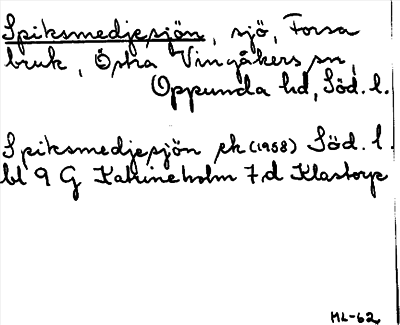 Spiksmedjesjön, sjö, Forsa
bruk, Östra Vingåkers sn,
Oppunda hd, Söd. l.
Spiksmedjesjön ek (1958) Söd. l.
bl 9 G Katrineholm 7d Klastorp
ML-62.